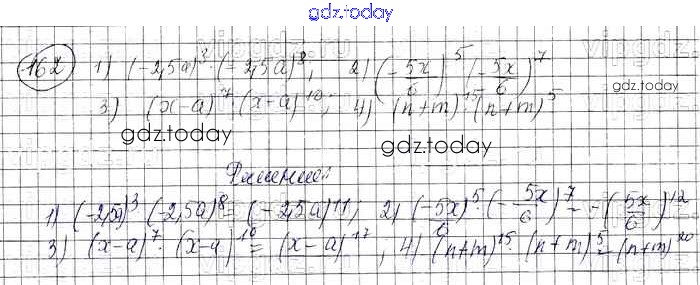 gdz.today
162 1) (-2,5a)³ · (-2,5a)⁸; 2) (-5x/6)⁵ · (-5x/6)⁷
3) (x-a)⁷ · (x-a)¹⁰; 4) (n+m)¹⁵ · (n+m)⁵
gdz.today
gdz.today
gdz.today
Решение:
1) (-2,5a)³ · (-2,5a)⁸ = (-2,5a)¹¹; 2) (-5x/6)⁵ · (-5x/6)⁷ = -(5x/6)¹²
3) (x-a)⁷ · (x-a)¹⁰ = (x-a)¹⁷; 4) (n+m)¹⁵ · (n+m)⁵ = (n+m)²⁰